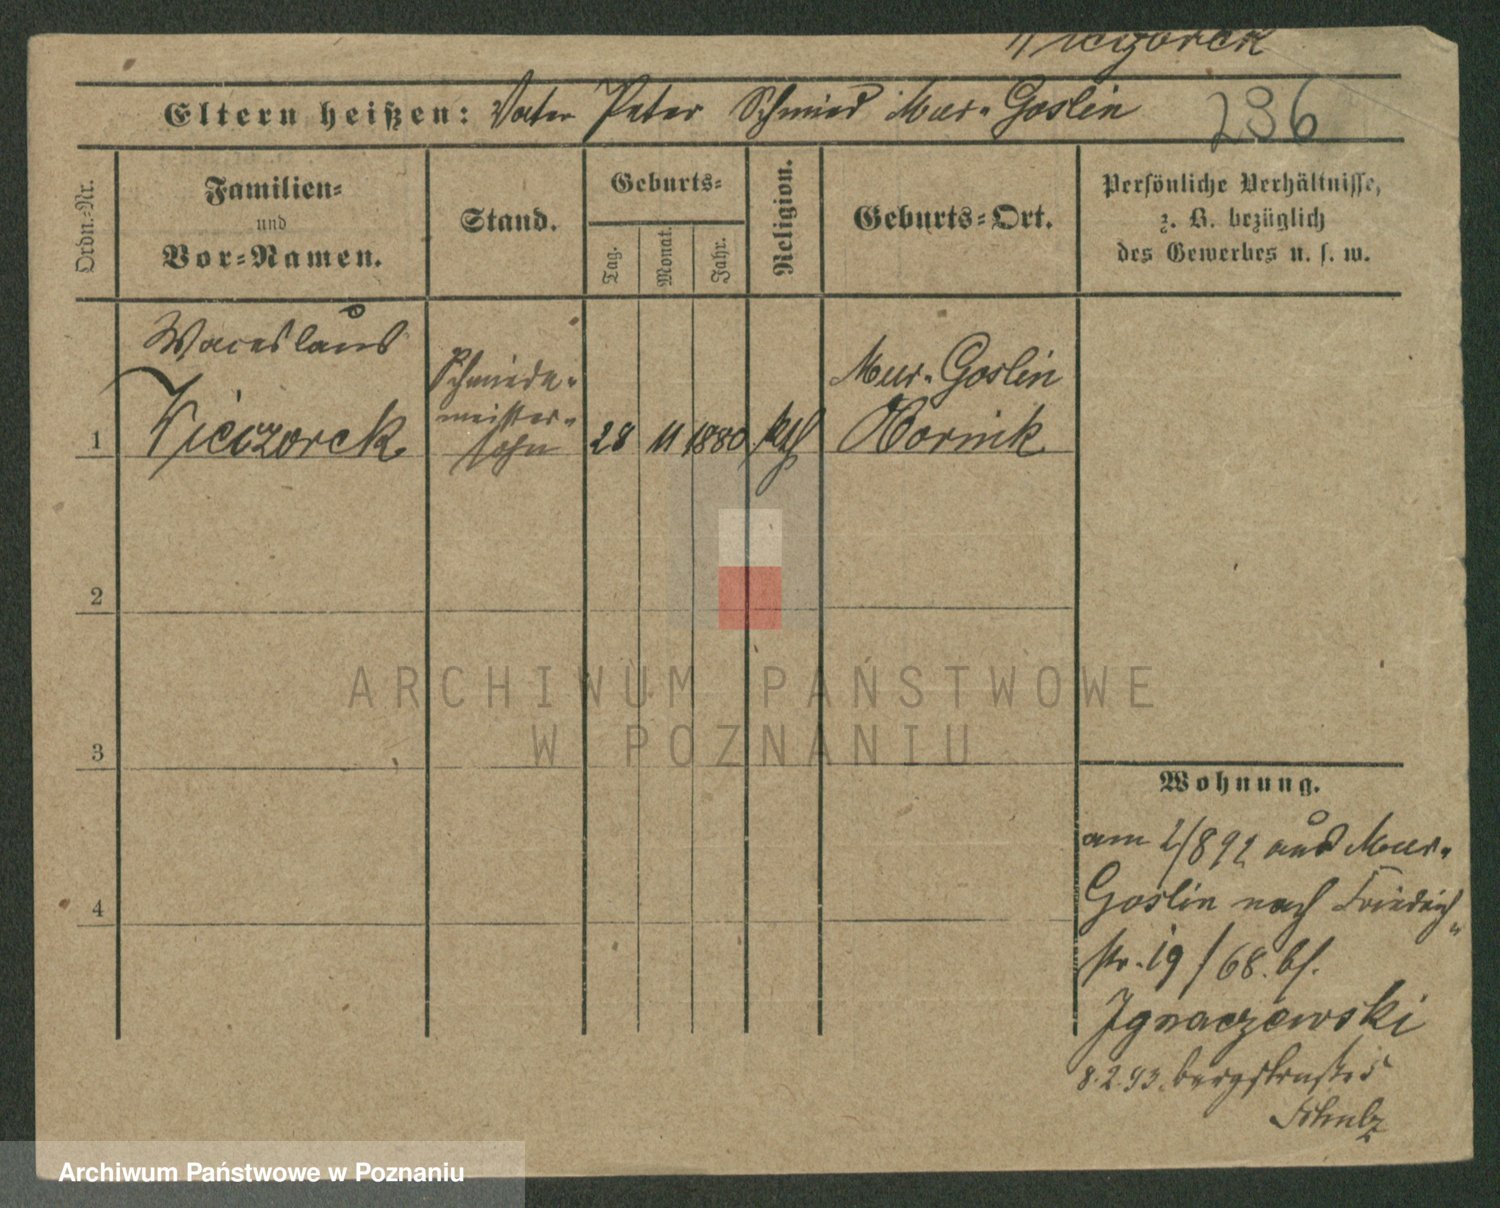 Wieczorek
Eltern heißen: Vater Peter Schmied Mur. Goslin
236
Ordn.-Nr.
Familien-
und
Vor-Namen.
Stand.
Geburts-
Tag.
Monat.
Jahr.
Religion.
Geburts-Ort.
Persönliche Verhältnisse,
z. B. bezüglich
des Gewerbes u. s. w.
Waceslaus
Wieczorek
Schmiede-
meister-
sohn
1
28 11 1880 kth
Mur. Goslin
Bornik
2
3
4
Wohnung.
am 2/892 aus Mur.
Goslin nach Friedrich-
str. 19/68. bs.
Ignaczewski
8.2.93. Bergstraße
Schulz
ARCHIWUM PAŃSTWOWE
W POZNANIU
Archiwum Państwowe w Poznaniu